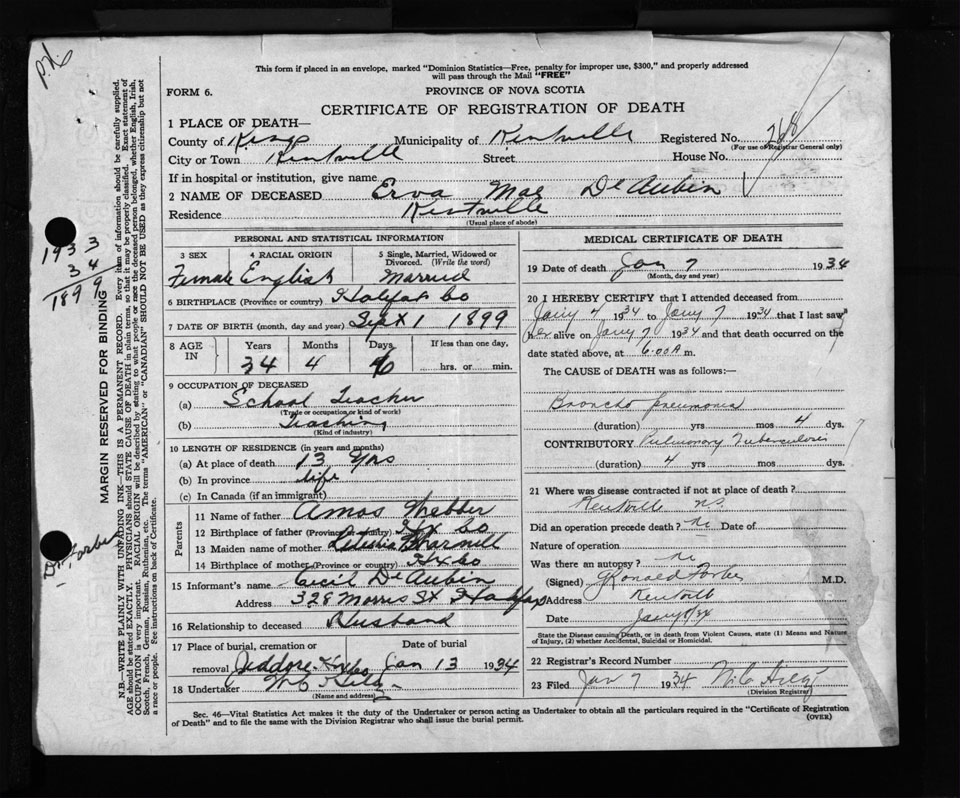 P.N.
This form if placed in an envelope, marked "Dominion Statistics—Free, penalty for improper use, $300," and properly addressed
will pass through the Mail "FREE"
FORM 6.
PROVINCE OF NOVA SCOTIA
CERTIFICATE OF REGISTRATION OF DEATH
1 PLACE OF DEATH—
County of Kings Municipality of Kentville Registered No. 268
(For use of Registrar General only)
City or Town Kentville Street House No.
If in hospital or institution, give name
2 NAME OF DECEASED Erva Mae De Aubin
Residence Kentville
(Usual place of abode)
PERSONAL AND STATISTICAL INFORMATION
3 SEX 4 RACIAL ORIGIN 5 Single, Married, Widowed or Divorced. (Write the word)
Female English Married
6 BIRTHPLACE (Province or country) Halifax Co
7 DATE OF BIRTH (month, day and year) Sept 1 1899
8 AGE IN Years Months Days If less than one day,
34 4 6 hrs. or min.
9 OCCUPATION OF DECEASED
(a) School Teacher
(Trade or occupation or kind of work)
(b) Teaching
(Kind of industry)
10 LENGTH OF RESIDENCE (in years and months)
(a) At place of death 13 yrs
(b) In province life
(c) In Canada (if an immigrant)
Parents
11 Name of father Amos Webber
12 Birthplace of father (Province or country) Hfx Co
13 Maiden name of mother
14 Birthplace of mother (Province or country) Hfx Co
15 Informant's name Cecil De Aubin
Address 328 Morris St Halifax
16 Relationship to deceased Husband
17 Place of burial, cremation or Date of burial
removal Jeddore Hfx Co Jan 13 1934
18 Undertaker
(Name and address)
MEDICAL CERTIFICATE OF DEATH
19 Date of death Jan 7 1934
(Month, day and year)
20 I HEREBY CERTIFY that I attended deceased from
Jany 4 1934 to Jany 7 1934 that I last saw
her alive on Jany 7 1934 and that death occurred on the
date stated above, at 6.00 A m.
The CAUSE of DEATH was as follows:—
Broncho pneumonia
(duration) yrs mos 4 dys.
CONTRIBUTORY Pulmonary Tuberculosis
(duration) 4 yrs mos dys.
21 Where was disease contracted if not at place of death?
Kentville N.S.
Did an operation precede death? no Date of
Nature of operation
Was there an autopsy? no
(Signed) G Ronald Forbes M.D.
Address Kentville
Date Jany 8/34
State the Disease causing Death, or in death from Violent Causes, state (1) Means and Nature
of Injury, (2) whether Accidental, Suicidal or Homicidal.
22 Registrar's Record Number
23 Filed Jan 7 1934
(Division Registrar)
Sec. 46—Vital Statistics Act makes it the duty of the Undertaker or person acting as Undertaker to obtain all the particulars required in the "Certificate of Registration
of Death" and to file the same with the Division Registrar who shall issue the burial permit.
(OVER)
MARGIN RESERVED FOR BINDING
N.B.—WRITE PLAINLY WITH UNFADING INK—THIS IS A PERMANENT RECORD. Every item of information should be carefully supplied.
AGE should be stated EXACTLY. PHYSICIANS should STATE CAUSE OF DEATH in plain terms, so that it may be properly classified. Exact statement of
OCCUPATION is very important. RACIAL ORIGIN will be described by stating to what people or race the deceased person belonged, whether English, Irish,
Scotch, French, German, Russian, Ruthenian, etc. The terms "AMERICAN" or "CANADIAN" SHOULD NOT BE USED as they express citizenship but not
a race or people. See instructions on back of Certificate.
1933
34
1899
Dr. Forbes